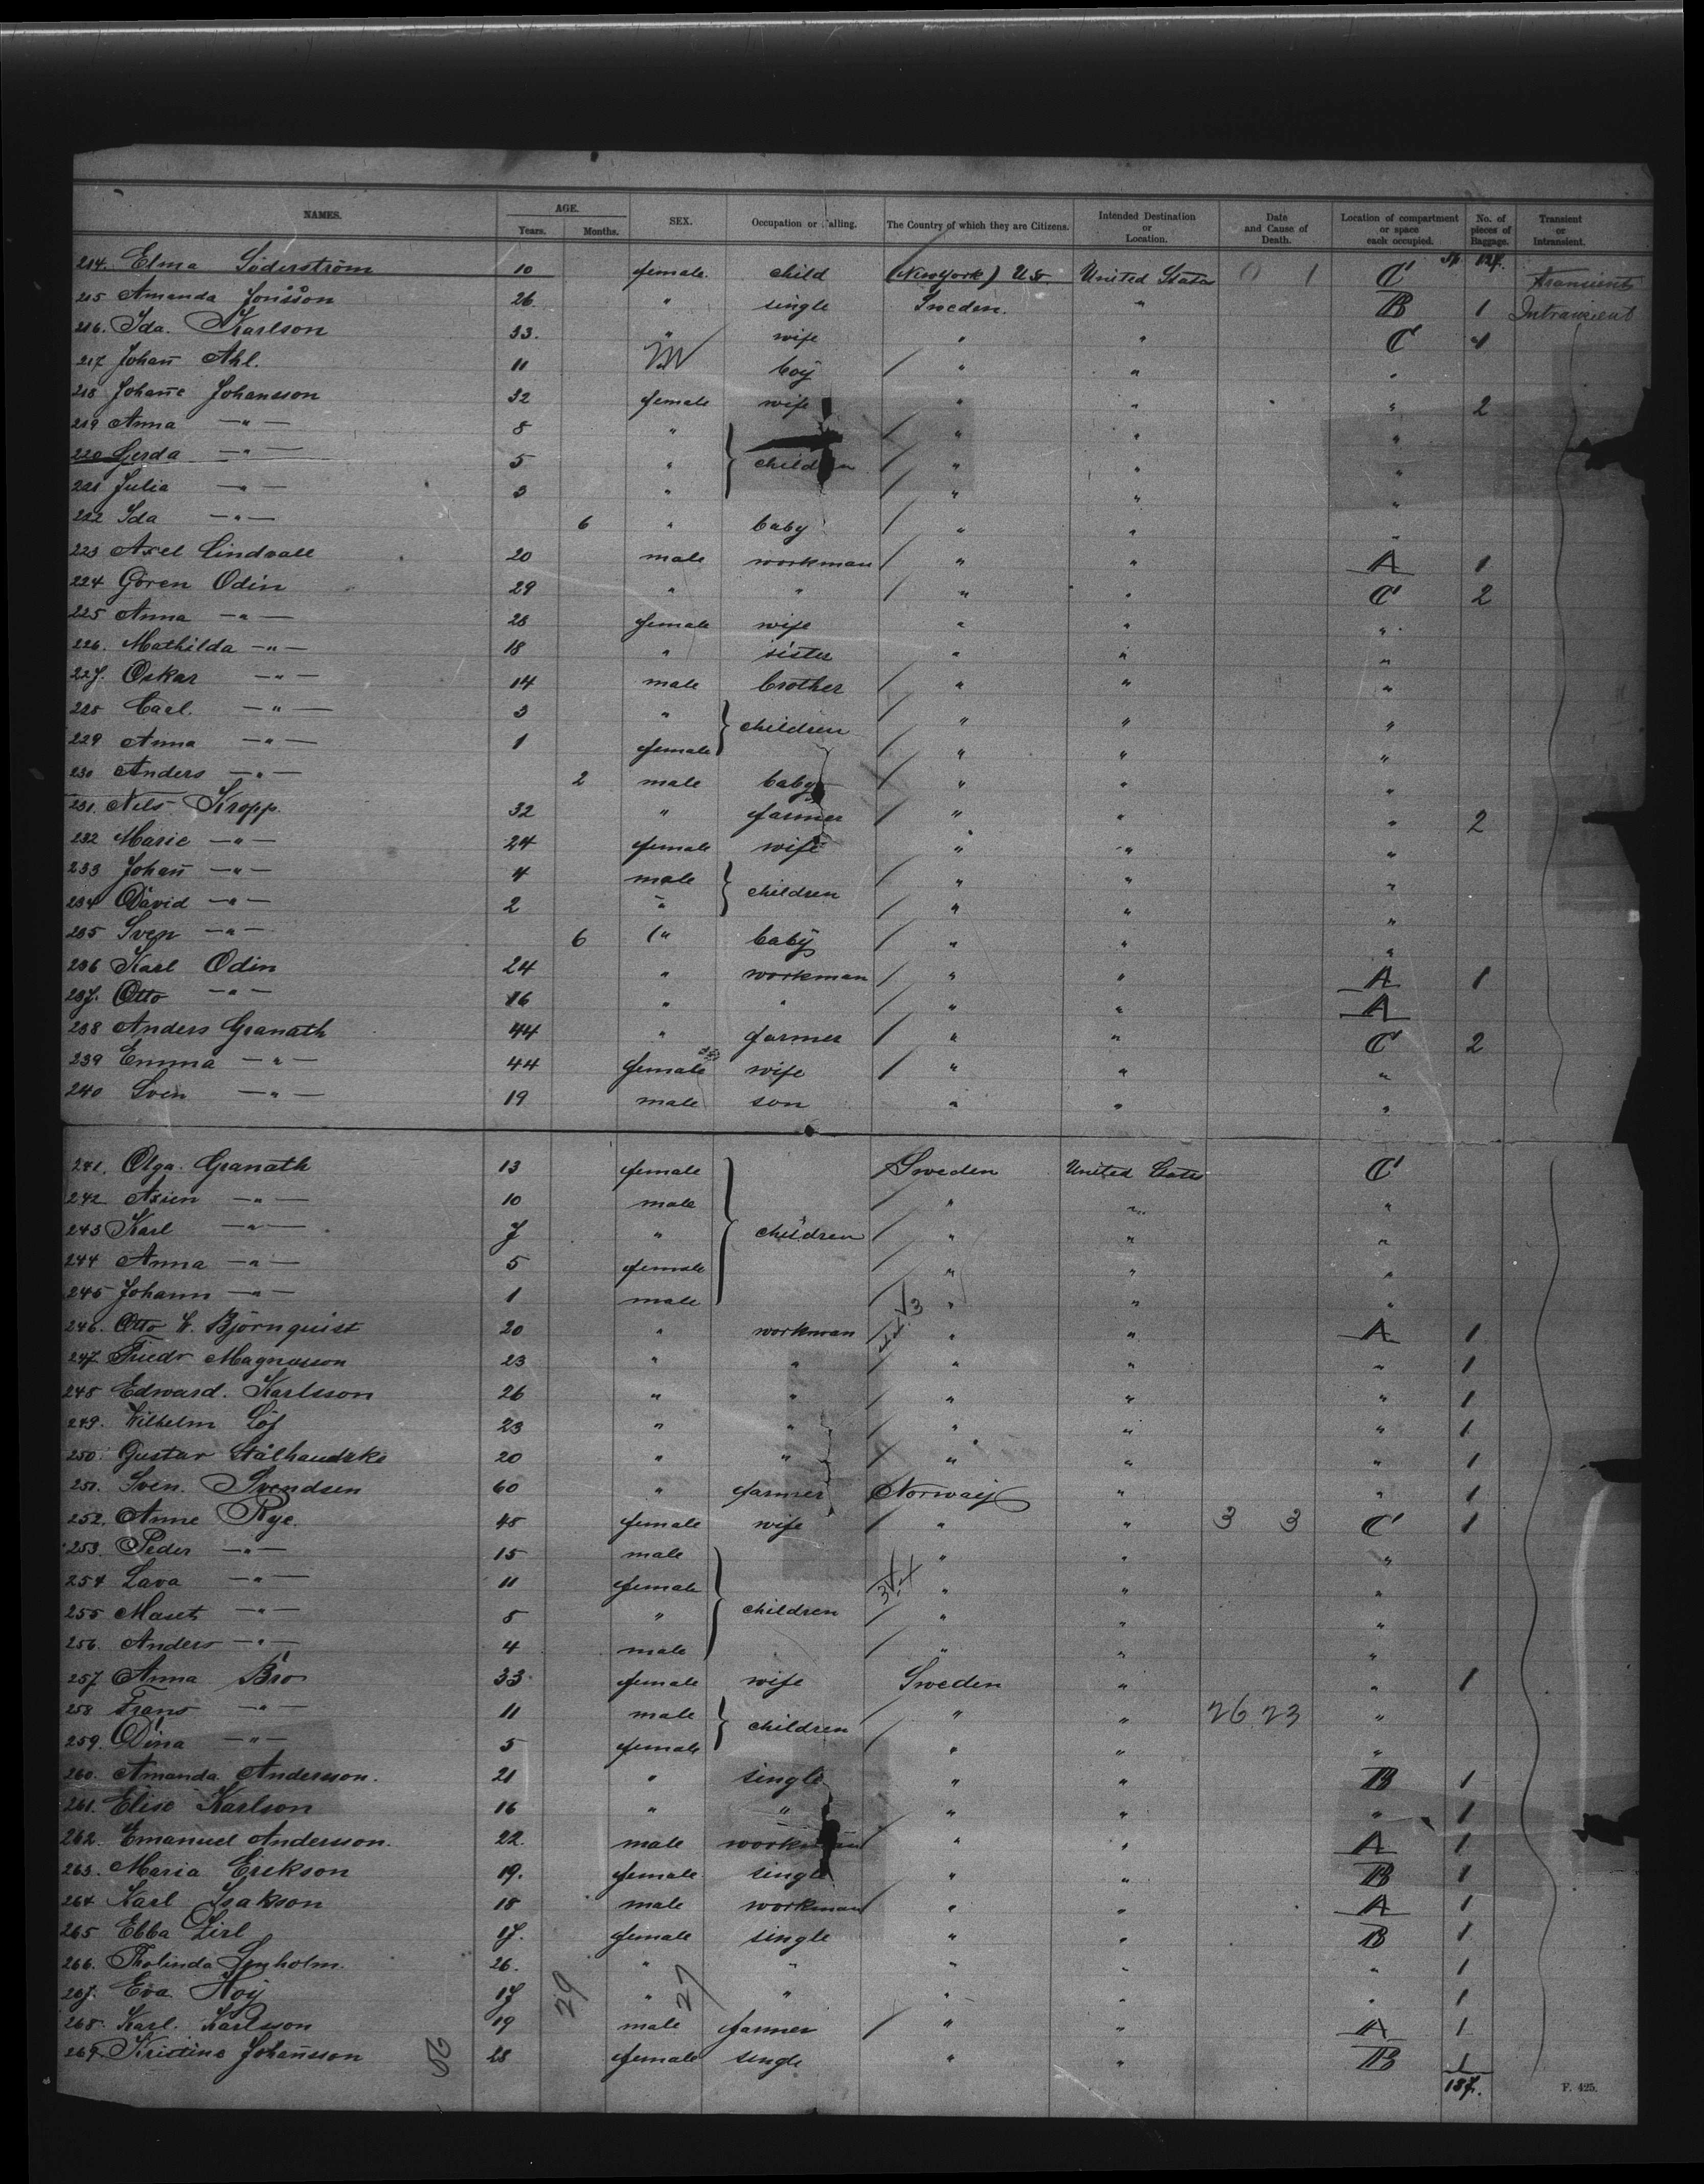 NAMES. AGE. Years. Months. SEX. Occupation or Calling. The Country of which they are Citizens. Intended Destination or Location. Date and Cause of Death. Location of compartment or space each occupied. No. of pieces of Baggage. Transient or Intransient.
127.
214. Elma Söderström 10 female child (Newyork) U.S. United States 0 1 C Transient
215 Amanda Jonsson 26 " single Sweden. " B 1 Intransient
216. Ida. Karlson 33. " wife " " C 1
217 Johan̄ Ahl. 11 M boy " " "
218 Johan̄e Johansson 32 female wife " " " 2
219 Anna —"— 8 " " " "
220 Gerda —"— 5 " children " " "
221 Julia —"— 3 " " " "
222 Ida —"— 6 " baby " " "
223 Axel Lindvall 20 male workman " " A 1
224 Goren Odin 29 " " " " C 2
225 Anna —"— 28 female wife " " "
226. Mathilda —"— 18 " sister " " "
227. Oskar —"— 14 male brother " " "
228 Carl. —"— 3 " children " " "
229 Anna —"— 1 female " " "
230 Anders —"— 2 male baby " " "
231. Nils Kropp. 32 " farmer " " " 2
232 Marie —"— 24 female wife " " "
233 Johan̄ —"— 4 male children " " "
234 David —"— 2 " " " "
235 Sven —"— 6 " baby " " "
236 Karl Odin 24 " workman " " A 1
237. Otto —"— 16 " " " " A
238 Anders Granath 44 " farmer " " C 2
239 Emma —"— 44 female wife " " "
240 Sven —"— 19 male son " " "
241. Olga. Granath 13 female Sweden United States C
242 —"— 10 male " " "
243 Karl —"— 7 " children " " "
244 Anna —"— 5 female " " "
245 Johann —"— 1 male " " "
246. Otto W. Björnquist 20 " workman " " A 1
247 Magnusson 23 " " " " " 1
248 Edward. Karlsson 26 " " " " " 1
249. Wilhelm Löf 23 " " " " " 1
250. Gustav Stålhandske 20 " " " " " 1
251. Sven. Svendsen 60 " farmer Norway " " 1
252. Anne Rye. 45 female wife " " 3 3 C 1
253. Peder —"— 15 male " " "
254 Lava —"— 11 female " " "
255 —"— 8 " children " " "
256. Anders —"— 4 male " " "
257 Anna Bro 33 female wife Sweden " " 1
258 Frans —"— 11 male children " " 26 23 "
259. Dina —"— 5 female " " "
260. Amanda. Andersson. 21 " single " " B 1
261. Elise Karlson 16 " " " " " 1
262. Emanuel Andersson. 22. male workman " " A 1
263. Maria Erikson 19. female single " " B 1
264 Karl Isakson 18 male workman " " A 1
265 Ebba 17. female single " " B 1
266. 26. " " " " " 1
267. Eva. Hoij 17 " " " " " 1
268. Karl. Karlsson 19 male farmer " " A 1
269. Kristine Johan̄sson 28 female single " " B 1
29 27
137.
F. 425.